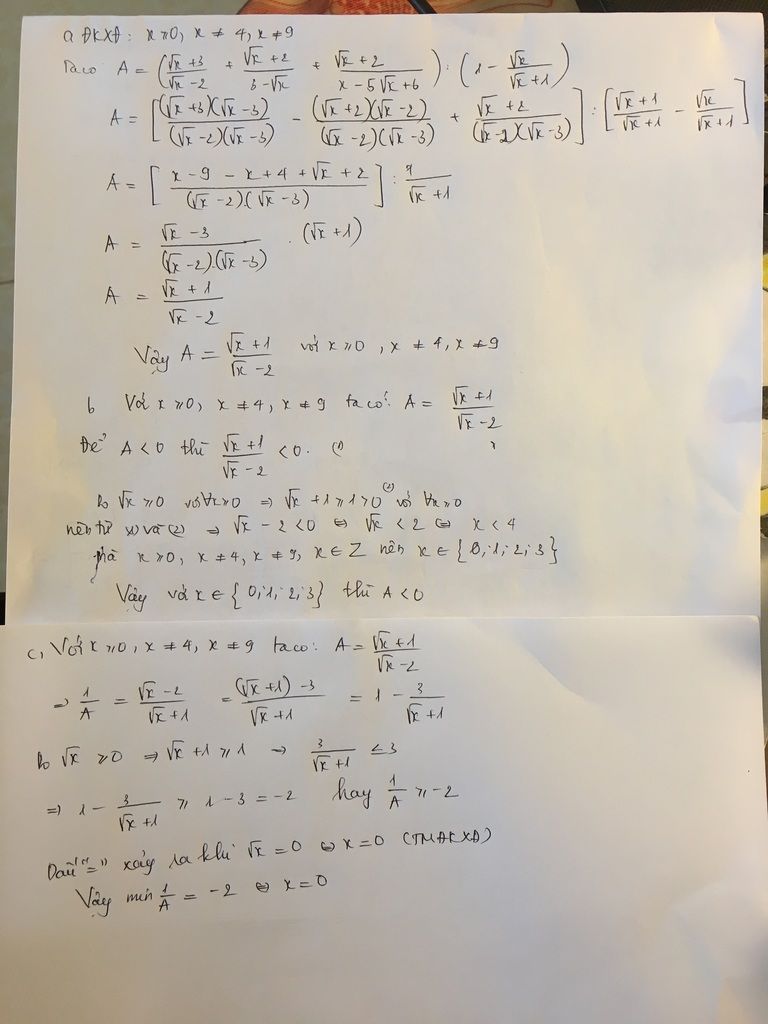 a ĐKXĐ: x ≥ 0, x ≠ 4, x ≠ 9
Ta có A = (\frac{√x + 3}{√x - 2} + \frac{√x + 2}{3 - √x} + \frac{√x + 2}{x - 5√x + 6}) : (1 - \frac{√x}{√x + 1})
A = [\frac{(√x + 3)(√x - 3)}{(√x - 2)(√x - 3)} - \frac{(√x + 2)(√x - 2)}{(√x - 2)(√x - 3)} + \frac{√x + 2}{(√x - 2)(√x - 3)}] : [\frac{√x + 1}{√x + 1} - \frac{√x}{√x + 1}]
A = [\frac{x - 9 - x + 4 + √x + 2}{(√x - 2).(√x - 3)}] : \frac{1}{√x + 1}
A = \frac{√x - 3}{(√x - 2).(√x - 3)} . (√x + 1)
A = \frac{√x + 1}{√x - 2}
Vậy A = \frac{√x + 1}{√x - 2} với x ≥ 0, x ≠ 4, x ≠ 9
b Với x ≥ 0, x ≠ 4, x ≠ 9 ta có: A = \frac{√x + 1}{√x - 2}
Để A < 0 thì \frac{√x + 1}{√x - 2} < 0. (1)
Do √x ≥ 0 với ∀x ≥ 0 ⇒ √x + 1 ≥ 1 > 0 (2) với ∀x ≥ 0
nên từ (1) và (2) ⇒ √x - 2 < 0 ⇔ √x < 2 ⇔ x < 4
Mà x ≥ 0, x ≠ 4, x ≠ 9, x ∈ Z nên x ∈ {0; 1; 2; 3}
Vậy với x ∈ {0; 1; 2; 3} thì A < 0
c, Với x ≥ 0, x ≠ 4, x ≠ 9 ta có: A = \frac{√x + 1}{√x - 2}
⇒ \frac{1}{A} = \frac{√x - 2}{√x + 1} = \frac{(√x + 1) - 3}{√x + 1} = 1 - \frac{3}{√x + 1}
Do √x ≥ 0 ⇒ √x + 1 ≥ 1 ⇒ \frac{3}{√x + 1} ≤ 3
⇒ 1 - \frac{3}{√x + 1} ≥ 1 - 3 = -2 hay \frac{1}{A} ≥ -2
Dấu "=" xảy ra khi √x = 0 ⇔ x = 0 (TMĐKXĐ)
Vậy min \frac{1}{A} = -2 ⇔ x = 0